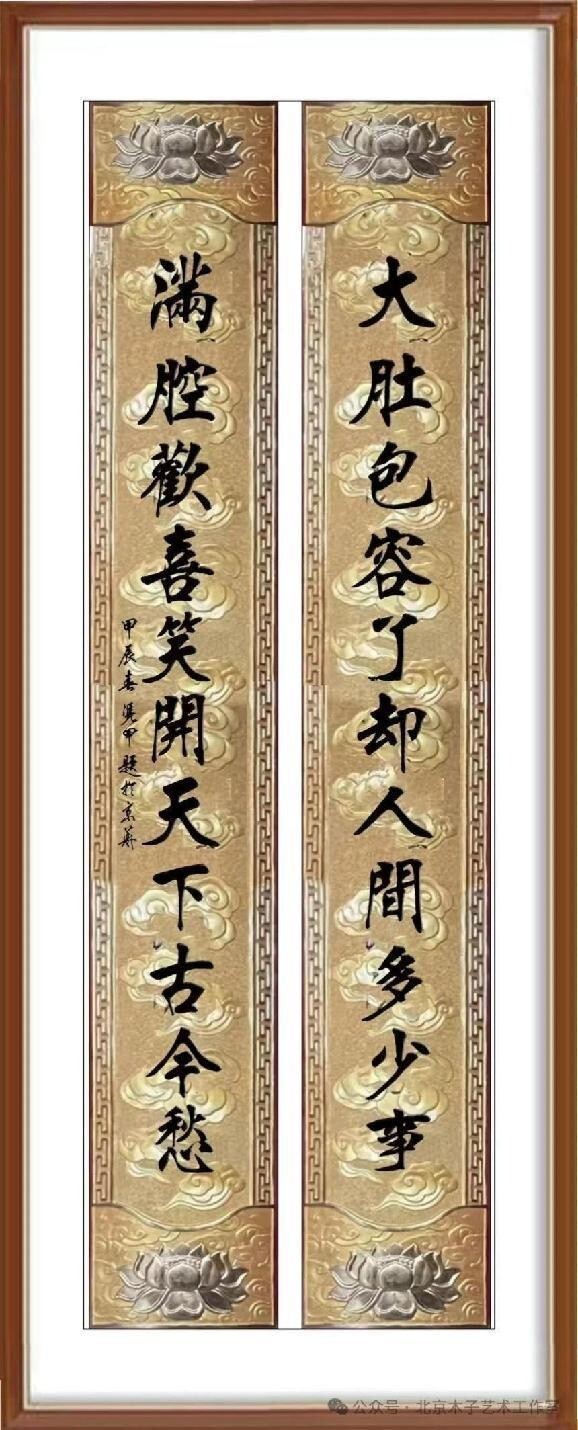 大肚包容了却人間多少事
滿腔歡喜笑開天下古今愁
甲辰春 甲題於京華
公众号·北京木子艺术工作室